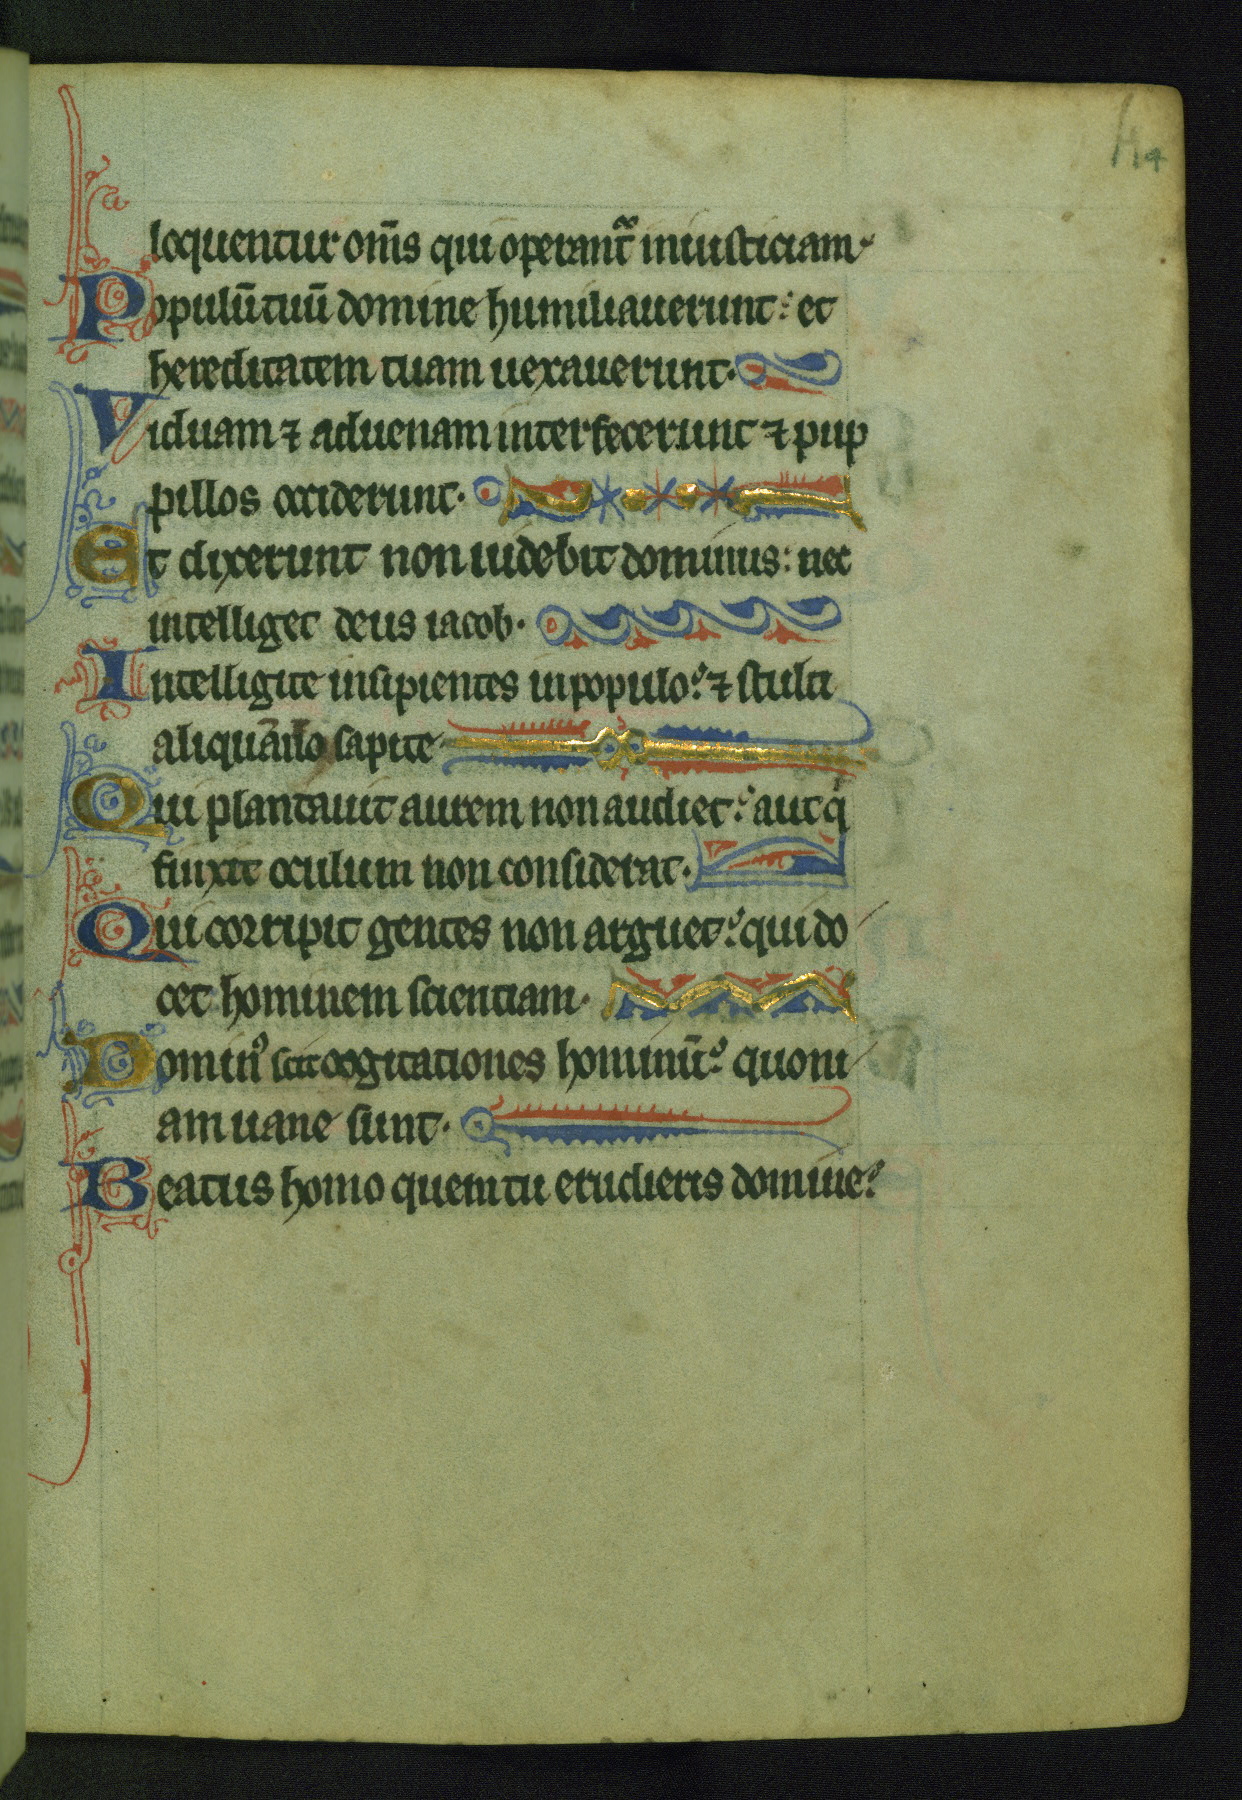 loquentur om̅s qui operant᷑ iniusticiam·
Populu̅ tuu̅ domine humiliauerunt: et
hereditatem tuam uexauerunt·
Viduam ⁊ aduenam interfecerunt ⁊ pup
pillos occiderunt·
Et dixerunt non uidebit dominus: nec
intelliget deus iacob·
Intelligite insipientes in populo: ⁊ stulti
aliqua̅do sapite
Qui plantauit aurem non audiet: aut qͥ
finxit oculum non considerat·
Qui corripit gentes non arguet: qui do
cet hominem scientiam·
Dominꝰ scit cogitationes hominu̅: quoni
am uane sunt·
Beatus homo quem tu erudieris domine: